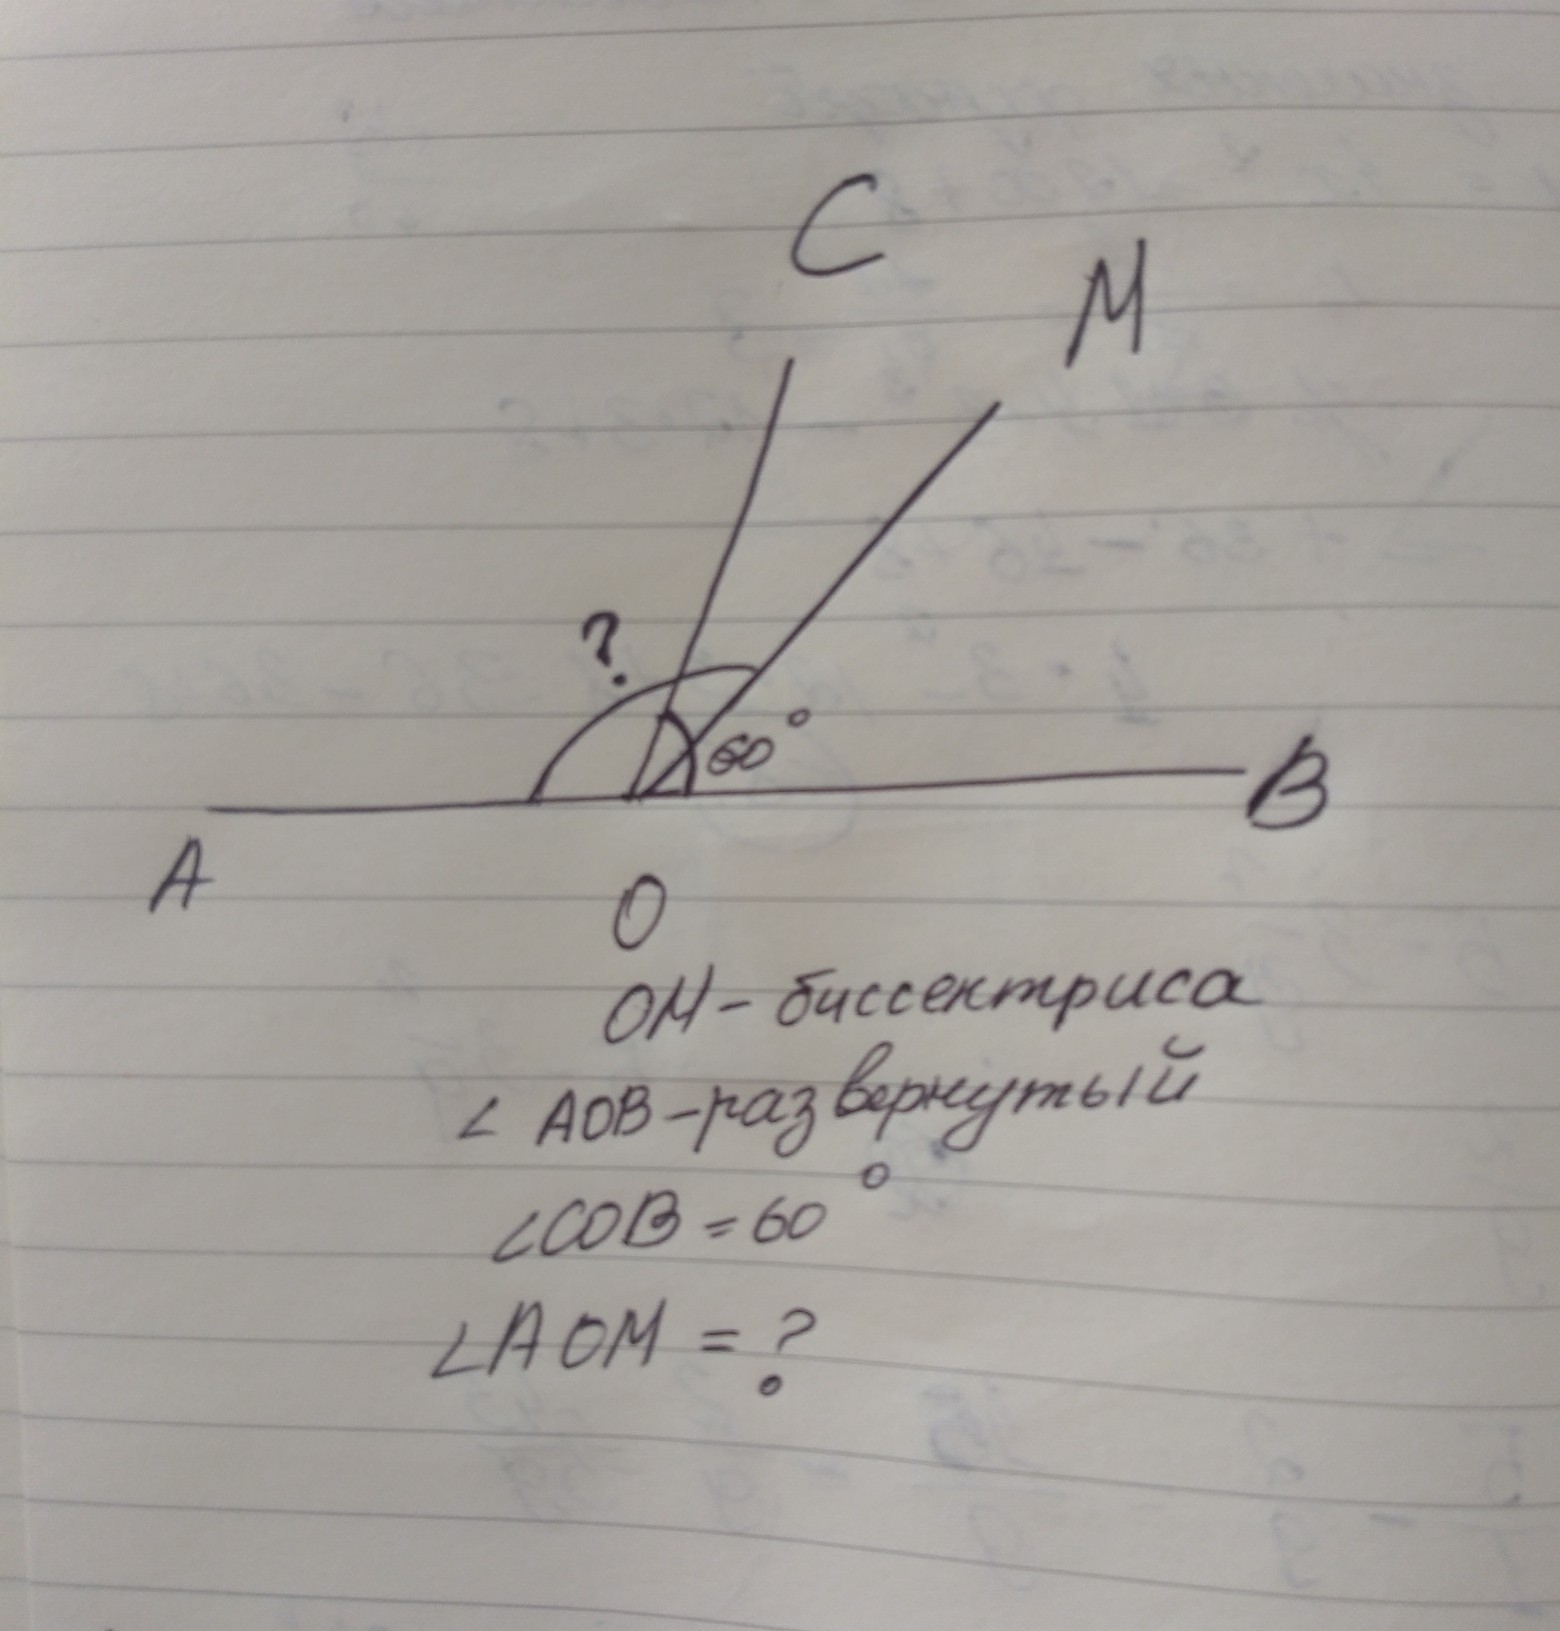 C
M
?
60°
A
B
O
OM - биссектриса
∠ AOB - развернутый
∠COB = 60°
∠AOM = ?